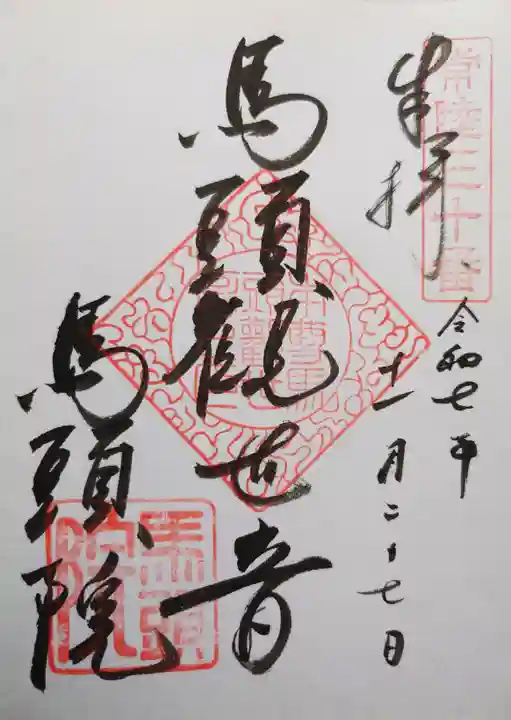 常陸三十番
奉拝
令和七年
十一月二十七日
馬頭観世音
馬頭院
馬頭院